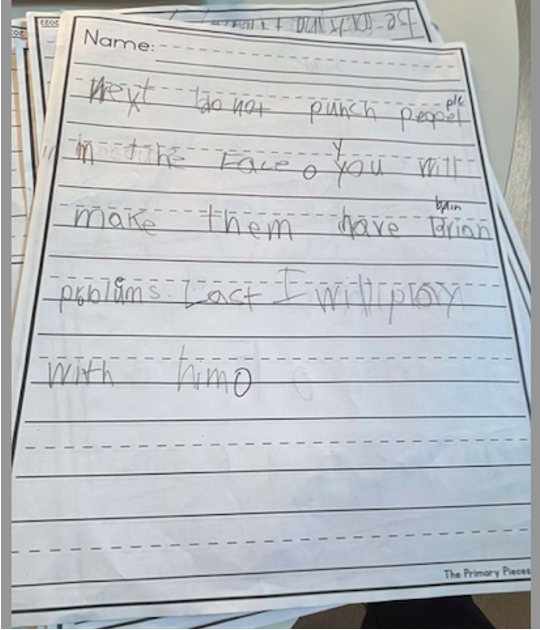 Name:
Next do not punch peopel ple
in the Face. You y will
make them have Brian bain
problums. Last I will play
with him.
The Primary Pieces